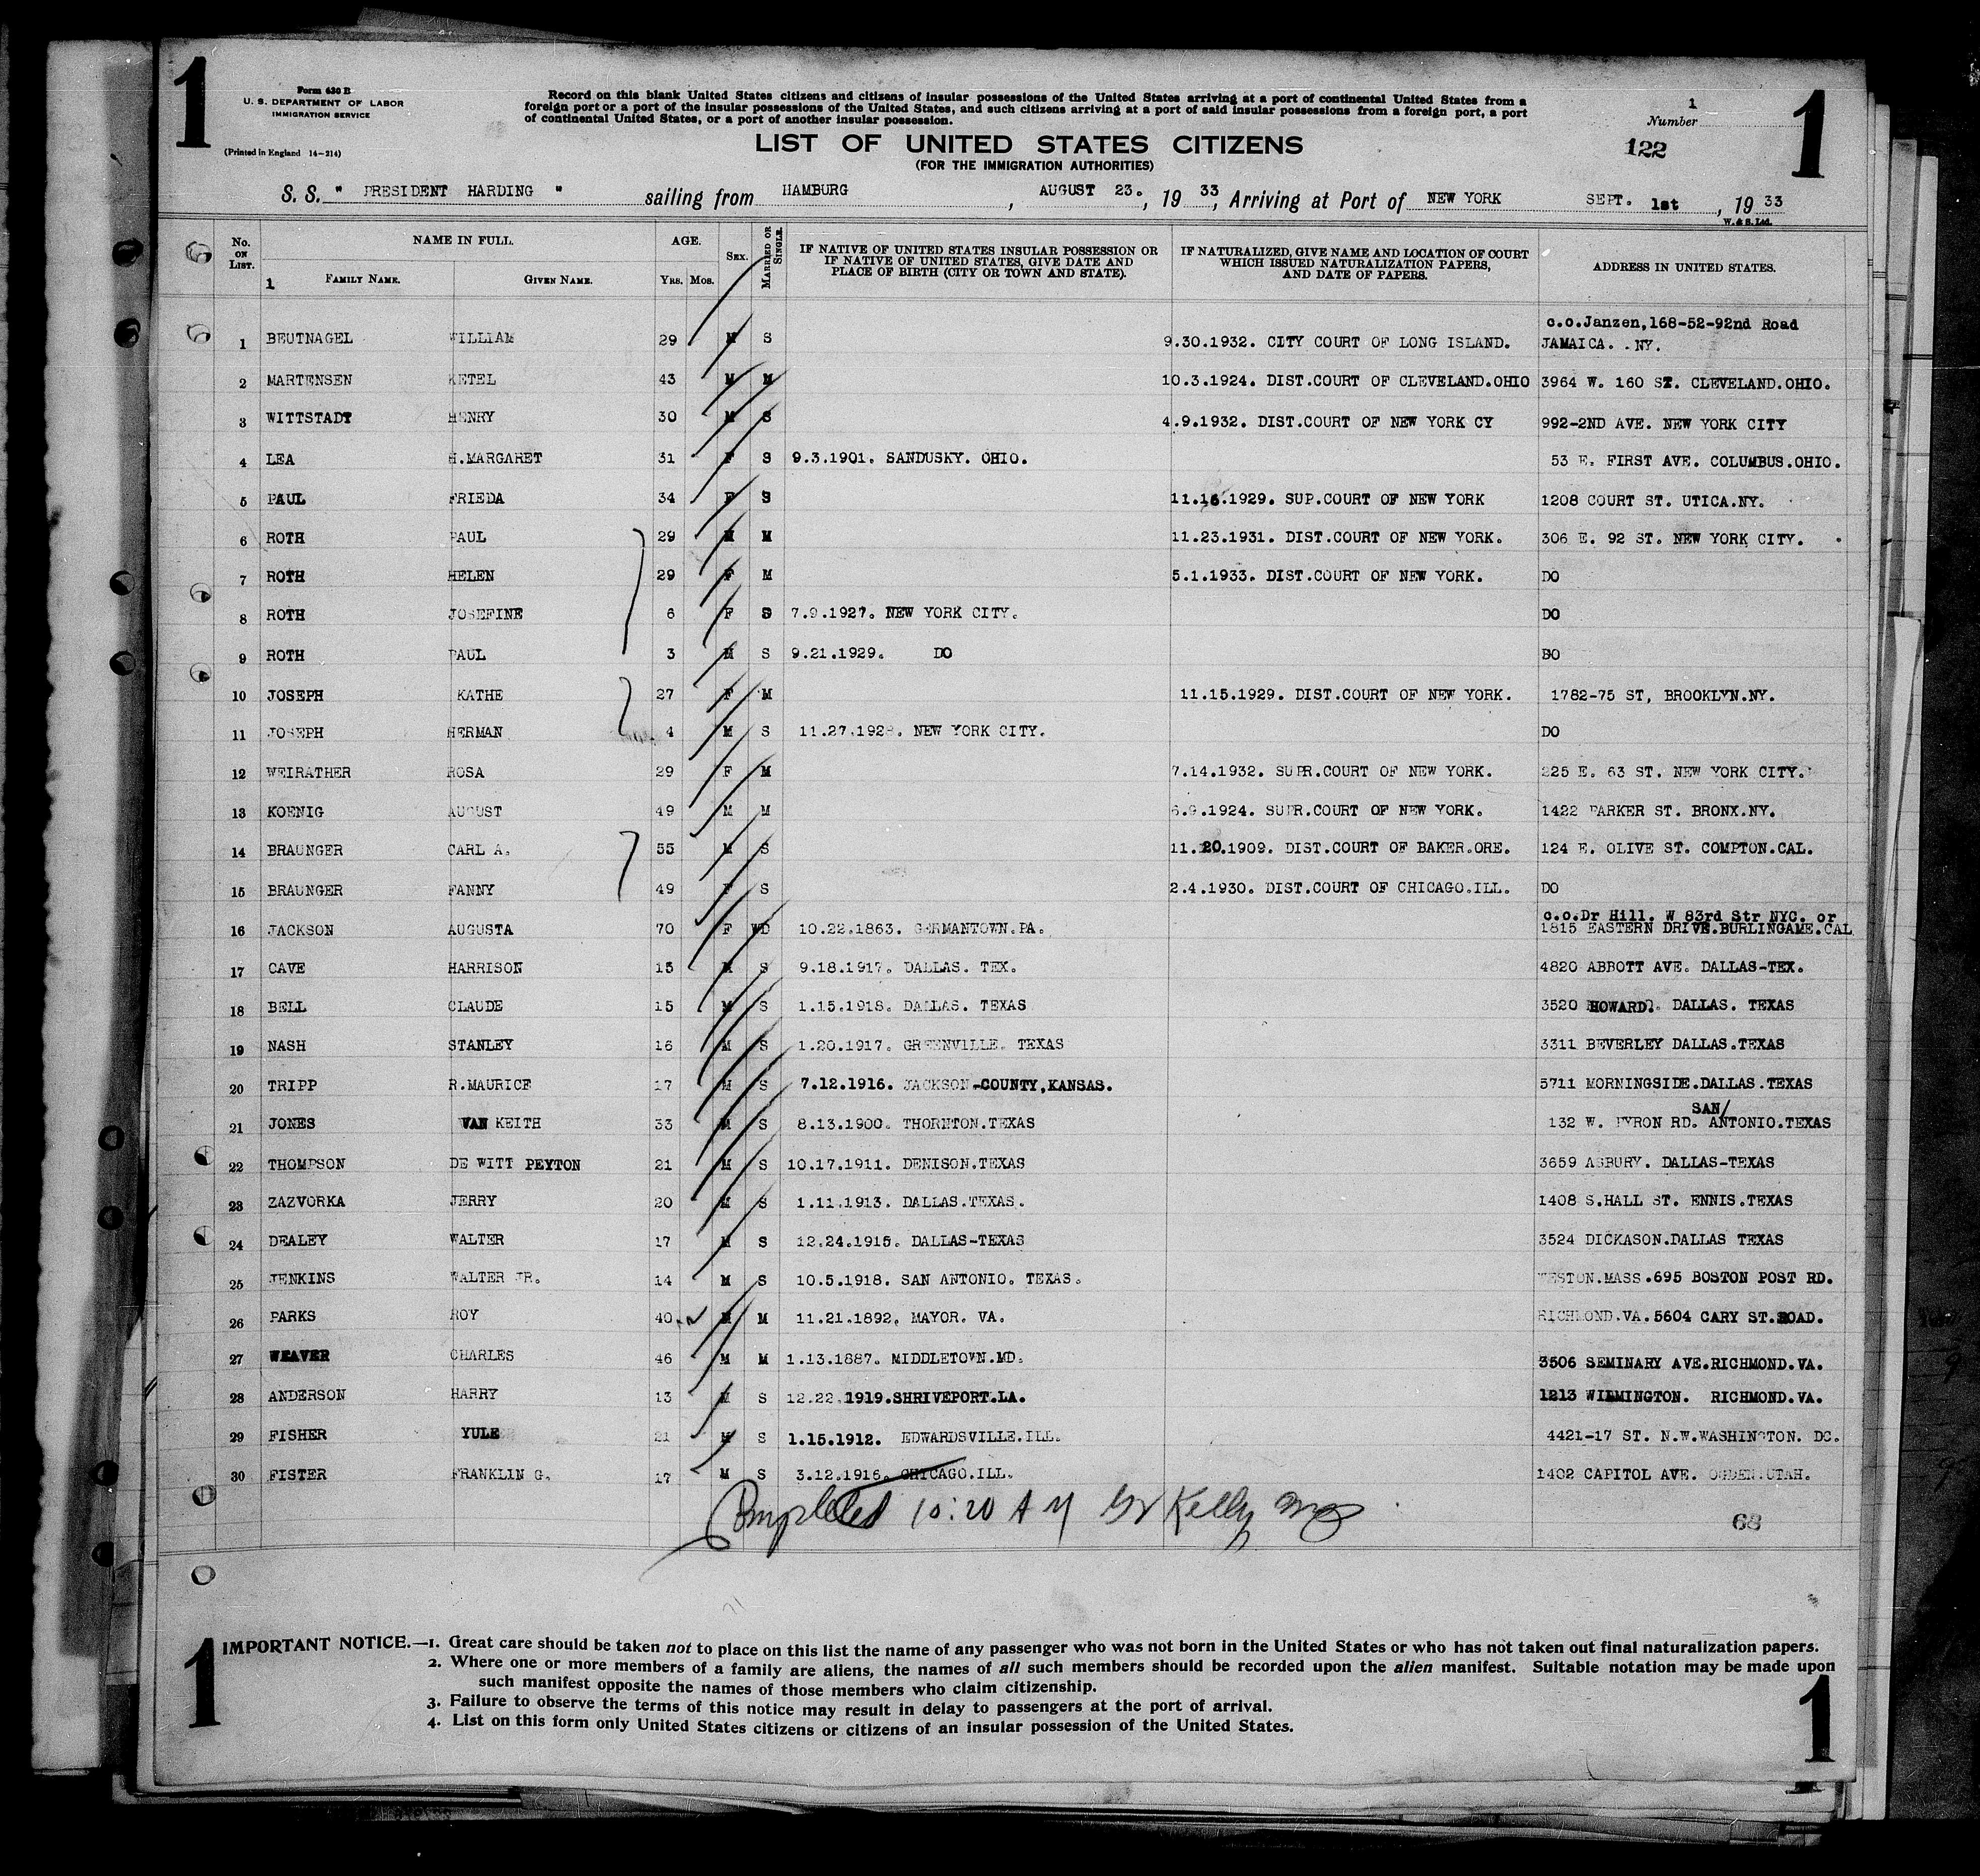 1
Form 630 B
U. S. DEPARTMENT OF LABOR
IMMIGRATION SERVICE
(Printed in England 14-214)
Record on this blank United States citizens and citizens of insular possessions of the United States arriving at a port of continental United States from a
foreign port or a port of the insular possessions of the United States, and such citizens arriving at a port of said insular possessions from a foreign port, a port
of continental United States, or a port of another insular possession.
LIST OF UNITED STATES CITIZENS
(FOR THE IMMIGRATION AUTHORITIES)
1
Number
122
1
S. S. " PRESIDENT HARDING " sailing from HAMBURG, AUGUST 23. , 19 33, Arriving at Port of NEW YORK SEPT. 1st , 19 33
W. & S. Ltd.
No. ON LIST. NAME IN FULL. AGE. SEX. MARRIED OR SINGLE. IF NATIVE OF UNITED STATES INSULAR POSSESSION OR IF NATIVE OF UNITED STATES, GIVE DATE AND PLACE OF BIRTH (CITY OR TOWN AND STATE). IF NATURALIZED, GIVE NAME AND LOCATION OF COURT WHICH ISSUED NATURALIZATION PAPERS, AND DATE OF PAPERS. ADDRESS IN UNITED STATES.
1 FAMILY NAME. GIVEN NAME. YRS. MOS.
c.o.Janzen,168-52-92nd Road
1 BEUTNAGEL WILLIAM 29 M S 9.30.1932. CITY COURT OF LONG ISLAND. JAMAICA. .NY.
2 MARTENSEN KETEL 43 M M 10.3.1924. DIST.COURT OF CLEVELAND.OHIO 3964 W. 160 ST. CLEVELAND.OHIO.
3 WITTSTADT HENRY 30 M S 4.9.1932. DIST.COURT OF NEW YORK CY 992-2ND AVE. NEW YORK CITY
4 LEA H.MARGARET 31 F S 9.3.1901. SANDUSKY. OHIO. 53 E. FIRST AVE. COLUMBUS.OHIO.
5 PAUL FRIEDA 34 F S 11.16.1929. SUP.COURT OF NEW YORK 1208 COURT ST. UTICA.NY.
6 ROTH PAUL 29 M M 11.23.1931. DIST.COURT OF NEW YORK. 306 E. 92 ST. NEW YORK CITY.
7 ROTH HELEN 29 F M 5.1.1933. DIST.COURT OF NEW YORK. DO
8 ROTH JOSEFINE 6 F S 7.9.1927. NEW YORK CITY. DO
9 ROTH PAUL 3 M S 9.21.1929. DO DO
10 JOSEPH KATHE 27 F M 11.15.1929. DIST.COURT OF NEW YORK. 1782-75 ST, BROOKLYN.NY.
11 JOSEPH HERMAN 4 M S 11.27.1928. NEW YORK CITY. DO
12 WEIRATHER ROSA 29 F M 7.14.1932. SUPR.COURT OF NEW YORK. 225 E. 63 ST. NEW YORK CITY.
13 KOENIG AUGUST 49 M M 6.9.1924. SUPR.COURT OF NEW YORK. 1422 PARKER ST. BRONX.NY.
14 BRAUNGER CARL A. 55 M S 11.20.1909. DIST.COURT OF BAKER.ORE. 124 E. OLIVE ST. COMPTON.CAL.
15 BRAUNGER FANNY 49 F S 2.4.1930. DIST.COURT OF CHICAGO.ILL. DO
c.o.Dr Hill. W 83rd Str NYC. or
16 JACKSON AUGUSTA 70 F WD 10.22.1863. GERMANTOWN.PA. 1815 EASTERN DRIVE.BURLINGAME.CAL
17 CAVE HARRISON 15 M S 9.18.1917. DALLAS. TEX. 4820 ABBOTT AVE. DALLAS-TEX.
18 BELL CLAUDE 15 M S 1.15.1918. DALLAS. TEXAS 3520 HOWARD. DALLAS. TEXAS
19 NASH STANLEY 16 M S 1.20.1917. GREENVILLE. TEXAS 3311 BEVERLEY DALLAS.TEXAS
20 TRIPP R.MAURICE 17 M S 7.12.1916. JACKSON-COUNTY,KANSAS. 5711 MORNINGSIDE.DALLAS.TEXAS
SAN/
21 JONES VAN KEITH 33 M S 8.13.1900. THORNTON.TEXAS 132 W. BYRON RD. ANTONIO.TEXAS
22 THOMPSON DE WITT PEYTON 21 M S 10.17.1911. DENISON.TEXAS 3659 ASBURY. DALLAS-TEXAS
23 ZAZVORKA JERRY 20 M S 1.11.1913. DALLAS.TEXAS. 1408 S.HALL ST. ENNIS.TEXAS
24 DEALEY WALTER 17 M S 12.24.1915. DALLAS-TEXAS 3524 DICKASON.DALLAS TEXAS
25 JENKINS WALTER JR. 14 M S 10.5.1918. SAN ANTONIO. TEXAS. WESTON.MASS.695 BOSTON POST RD.
26 PARKS ROY 40 M M 11.21.1892. MAYOR. VA. RICHMOND.VA.5604 CARY ST.ROAD.
27 WEAVER CHARLES 46 M M 1.13.1887. MIDDLETOWN.MD. 3506 SEMINARY AVE.RICHMOND.VA.
28 ANDERSON HARRY 13 M S 12.22.1919.SHRIVEPORT.LA. 1213 WILMINGTON. RICHMOND.VA.
29 FISHER YULE 21 M S 1.15.1912. EDWARDSVILLE.ILL. 4421-17 ST. N.W.WASHINGTON. DC.
30 FISTER FRANKLIN G. 17 M S 3.12.1916. CHICAGO.ILL. 1402 CAPITOL AVE. OGDEN.UTAH.
Completed 10:20 AM Kelly
68
1
IMPORTANT NOTICE.—1. Great care should be taken not to place on this list the name of any passenger who was not born in the United States or who has not taken out final naturalization papers.
2. Where one or more members of a family are aliens, the names of all such members should be recorded upon the alien manifest. Suitable notation may be made upon
such manifest opposite the names of those members who claim citizenship.
3. Failure to observe the terms of this notice may result in delay to passengers at the port of arrival.
4. List on this form only United States citizens or citizens of an insular possession of the United States.
1